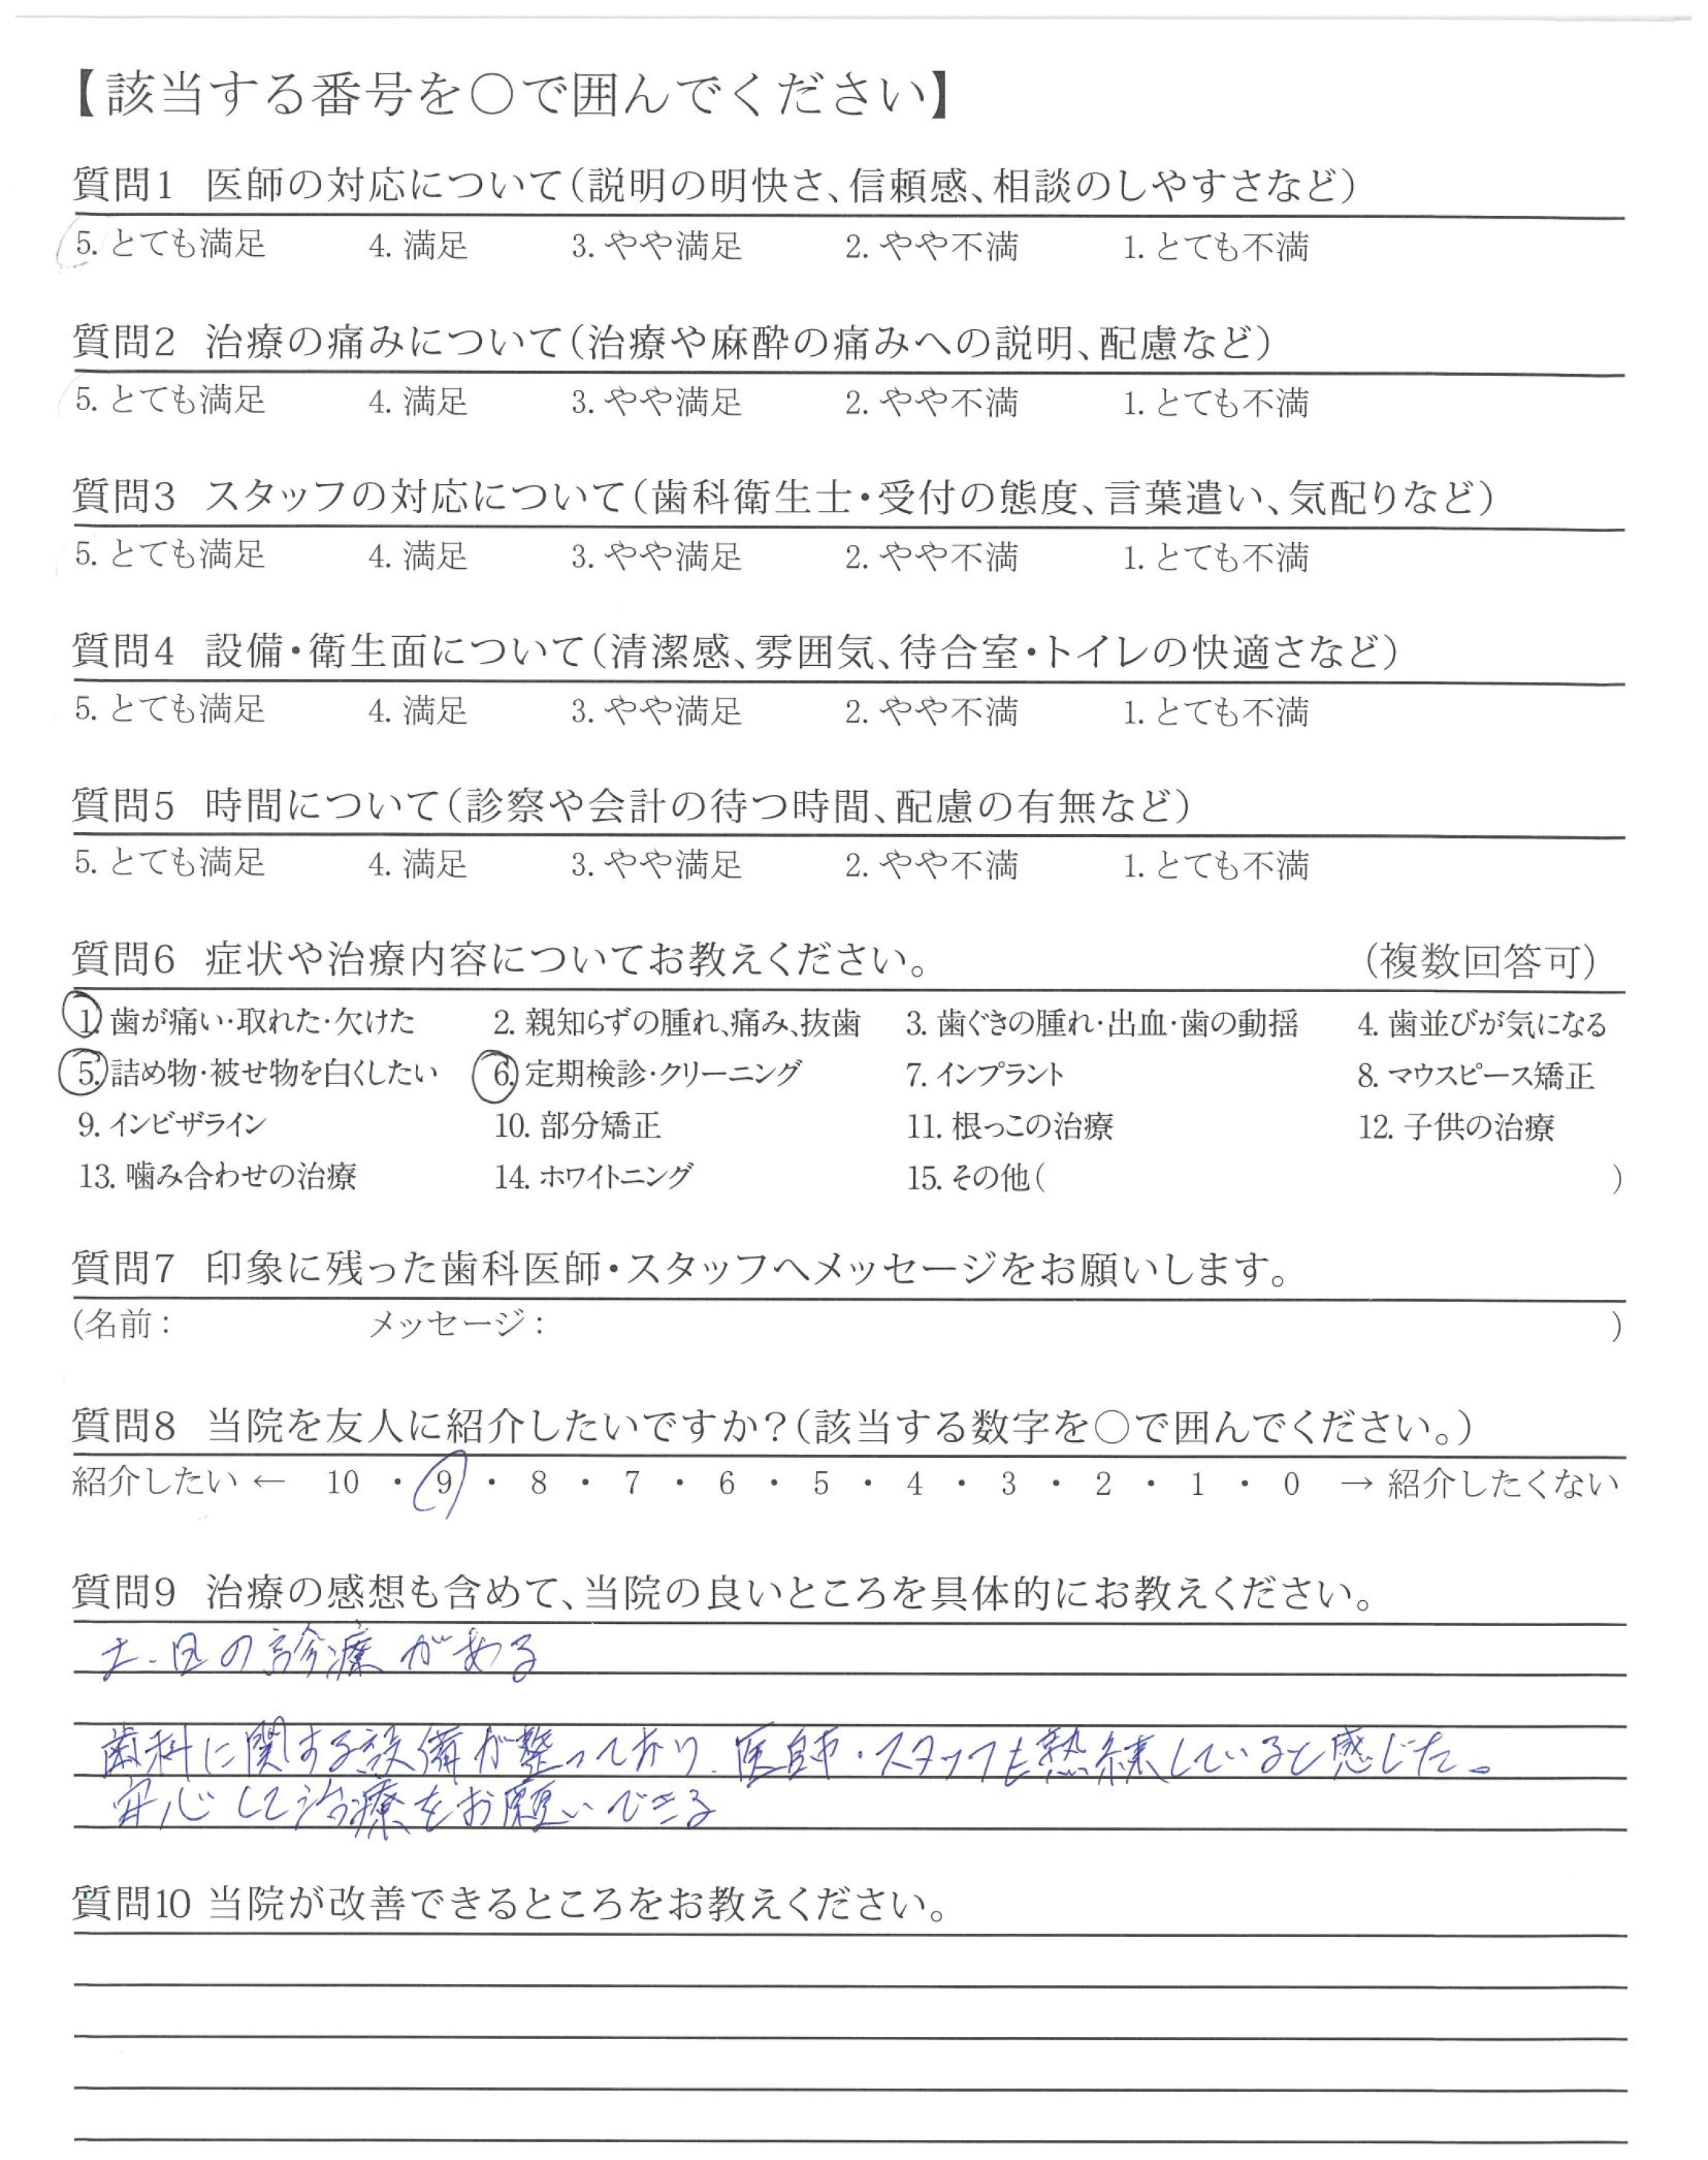 【該当する番号を○で囲んでください】
質問1 医師の対応について(説明の明快さ、信頼感、相談のしやすさなど)
5. とても満足 4. 満足 3. やや満足 2. やや不満 1. とても不満
質問2 治療の痛みについて(治療や麻酔の痛みへの説明、配慮など)
5. とても満足 4. 満足 3. やや満足 2. やや不満 1. とても不満
質問3 スタッフの対応について(歯科衛生士・受付の態度、言葉遣い、気配りなど)
5. とても満足 4. 満足 3. やや満足 2. やや不満 1. とても不満
質問4 設備・衛生面について(清潔感、雰囲気、待合室・トイレの快適さなど)
5. とても満足 4. 満足 3. やや満足 2. やや不満 1. とても不満
質問5 時間について(診察や会計の待つ時間、配慮の有無など)
5. とても満足 4. 満足 3. やや満足 2. やや不満 1. とても不満
質問6 症状や治療内容についてお教えください。 (複数回答可)
1. 歯が痛い・取れた・欠けた 2. 親知らずの腫れ、痛み、抜歯 3. 歯ぐきの腫れ・出血・歯の動揺 4. 歯並びが気になる
5. 詰め物・被せ物を白くしたい 6. 定期検診・クリーニング 7. インプラント 8. マウスピース矯正
9. インビザライン 10. 部分矯正 11. 根っこの治療 12. 子供の治療
13. 噛み合わせの治療 14. ホワイトニング 15. その他( )
質問7 印象に残った歯科医師・スタッフへメッセージをお願いします。
(名前: メッセージ: )
質問8 当院を友人に紹介したいですか?(該当する数字を○で囲んでください。)
紹介したい ← 10 ・ 9 ・ 8 ・ 7 ・ 6 ・ 5 ・ 4 ・ 3 ・ 2 ・ 1 ・ 0 → 紹介したくない
質問9 治療の感想も含めて、当院の良いところを具体的にお教えください。
土.日の診療がある
歯科に関する設備が整っており、医師・スタッフも熟練していると感じた。
安心して治療をお願いできる
質問10 当院が改善できるところをお教えください。